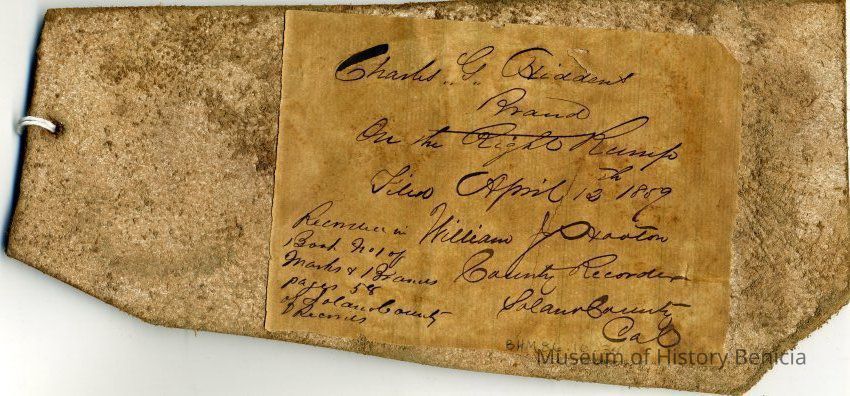 Charles G. Hiddens
Brand
On the Right Rump
Filed April 13th 1859
William J. Hooton
County Recorder
Solano County
Cal
Recorded in
Book No 1 of
Marks & Brands
pages 58
of Solano County
Records
Museum of History Benicia